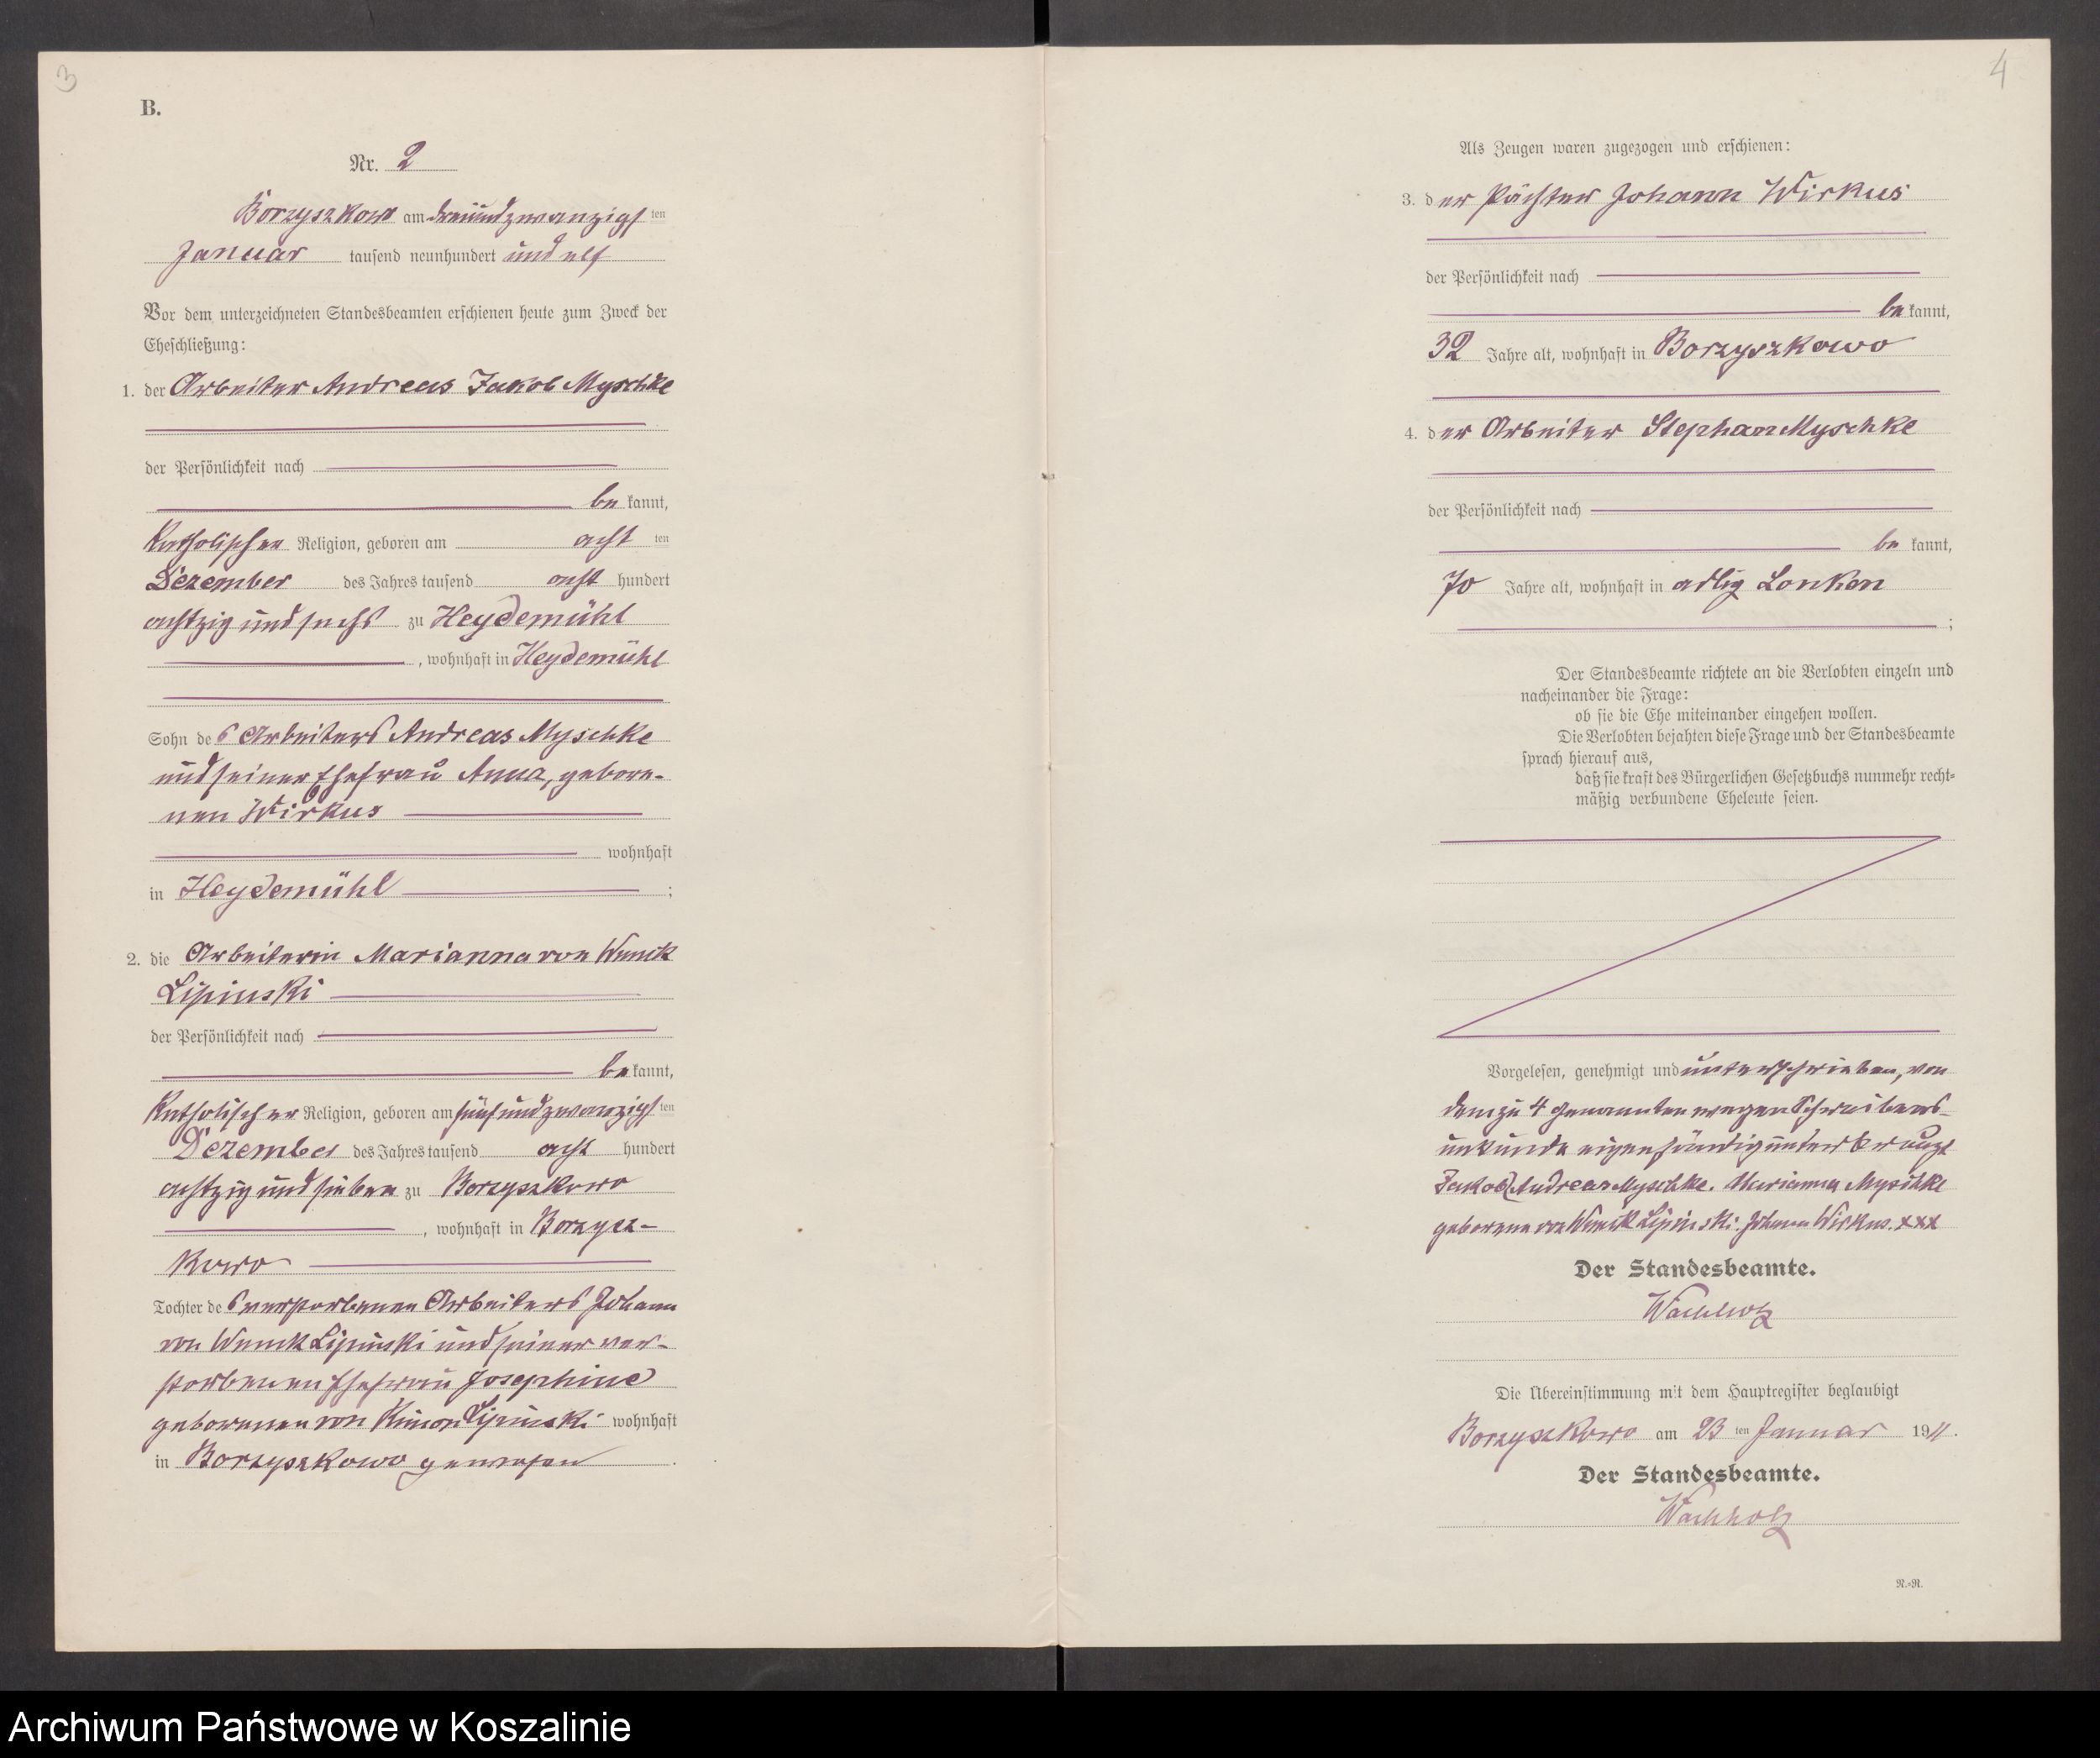 3
B.
Nr. 2
Borzyszkowo am dreiundzwanzigsten
Januar tausend neunhundert und elf
Vor dem unterzeichneten Standesbeamten erschienen heute zum Zweck der
Eheschließung:
1. der Arbeiter Andreas Jakob Myschke
der Persönlichkeit nach
be kannt,
Katholischer Religion, geboren am acht ten
Dezember des Jahres tausend acht hundert
achtzig und sechs zu Heydemühl
, wohnhaft in Heydemühl
Sohn des Arbeiters Andreas Myschke
und seiner Ehefrau Anna, gebore-
nen Wirkus
wohnhaft
in Heydemühl ;
2. die Arbeiterin Marianna von Wnuck
Lipinski
der Persönlichkeit nach
be kannt,
Katholischer Religion, geboren am fünfundzwanzigsten
Dezember des Jahres tausend acht hundert
achtzig und sieben zu Borzyszkowo
, wohnhaft in Borzysz-
kowo
Tochter des verstorbenen Arbeiters Johann
von Wnuck Lipinski und seiner ver-
storbenen Ehefrau Josephine
geborenen von Lipinski wohnhaft
in Borzyszkowo gewesen .
4
Als Zeugen waren zugezogen und erschienen:
3. der Pächter Johann Wirkus
der Persönlichkeit nach
be kannt,
32 Jahre alt, wohnhaft in Borzyszkowo
4. der Arbeiter Stephan Myschke
der Persönlichkeit nach
be kannt,
70 Jahre alt, wohnhaft in adlig Lonken
;
Der Standesbeamte richtete an die Verlobten einzeln und
nacheinander die Frage:
ob sie die Ehe miteinander eingehen wollen.
Die Verlobten bejahten diese Frage und der Standesbeamte
sprach hierauf aus,
daß sie kraft des Bürgerlichen Gesetzbuchs nunmehr recht-
mäßig verbundene Eheleute seien.
Vorgelesen, genehmigt und unterschrieben, von
dem zu 4 genannten wegen Schreibens-
unkunde eigenhändig unterkreuzt
Jakob Andreas Myschke. Marianna Myschke
geborene von Wnuck Lipinski. Johann Wirkus. xxx
Der Standesbeamte.
Wachholz
Die Übereinstimmung mit dem Hauptregister beglaubigt
Borzyszkowo am 23 ten Januar 1911.
Der Standesbeamte.
Wachholz
N.-R.
Archiwum Państwowe w Koszalinie